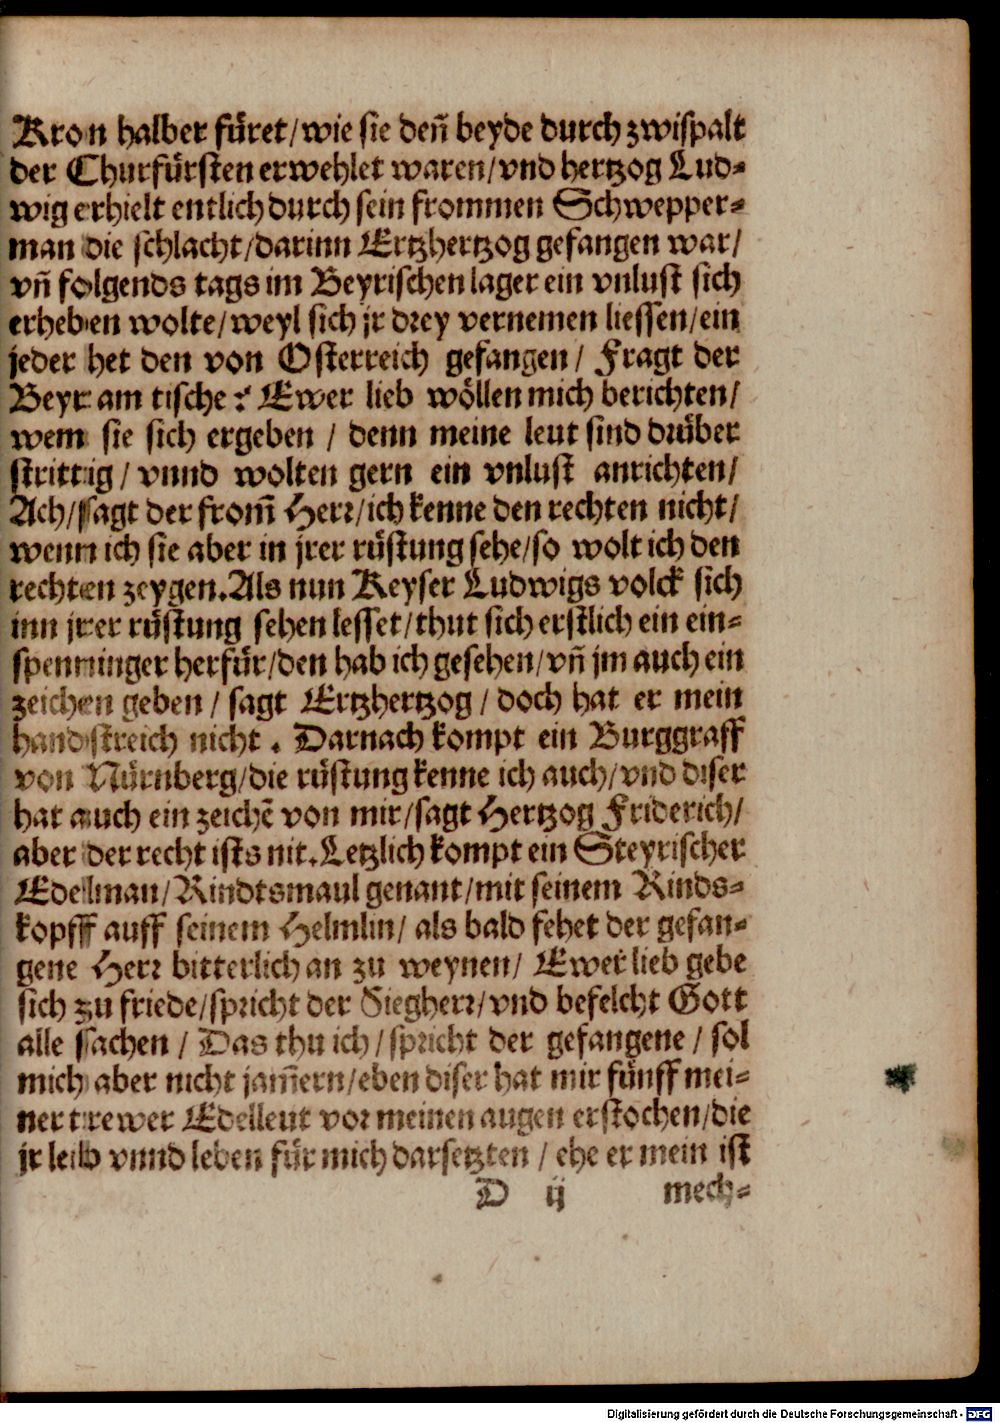 Kron halber füret/wie sie deñ beyde durch zwispalt
der Churfürsten erwehlet waren/vnd hertzog Lud⸗
wig erhielt entlich durch sein frommen Schwepper⸗
man die schlacht/darinn Ertzhertzog gefangen war/
vñ folgends tags im Beyrischen lager ein vnlust sich
erheben wolte/weyl sich jr drey vernemen liessen/ein
jeder het den von Osterreich gefangen/ Fragt der
Beyr am tische: Ewer lieb wöllen mich berichten/
wem sie sich ergeben / denn meine leut sind drüber
strittig/ vnnd wolten gern ein vnlust anrichten/
Ach/sagt der from̃ Herr/ich kenne den rechten nicht/
wenn ich sie aber in jrer rüstung sehe/so wolt ich den
rechten zeygen. Als nun Keyser Ludwigs volck sich
inn jrer rüstung sehen lesset/thut sich erstlich ein ein⸗
spenninger herfür/den hab ich gesehen/vñ jm auch ein
zeichen geben / sagt Ertzhertzog / doch hat er mein
handstreich nicht. Darnach kompt ein Burggraff
von Nürnberg/die rüstung kenne ich auch/vnd diser
hat auch ein zeichẽ von mir/sagt Hertzog Friderich/
aber der recht ists nit. Letzlich kompt ein Steyrischer
Edelman/Rindtsmaul genant/mit seinem Rinds⸗
kopff auff seinem Helmlin/ als bald fehet der gefan⸗
gene Herr bitterlich an zu weynen/ Ewer lieb gebe
sich zu friede/spricht der Siegherr/vnd befelcht Gott
alle sachen / Das thu ich/spricht der gefangene / sol
mich aber nicht jam̃ern/eben diser hat mir fünff mei⸗
ner trewer Edelleut vor meinen augen erstochen/die
jr leib vnnd leben für mich darsetzten / ehe er mein ist
D ij mech⸗
Digitalisierung gefördert durch die Deutsche Forschungsgemeinschaft - DFG